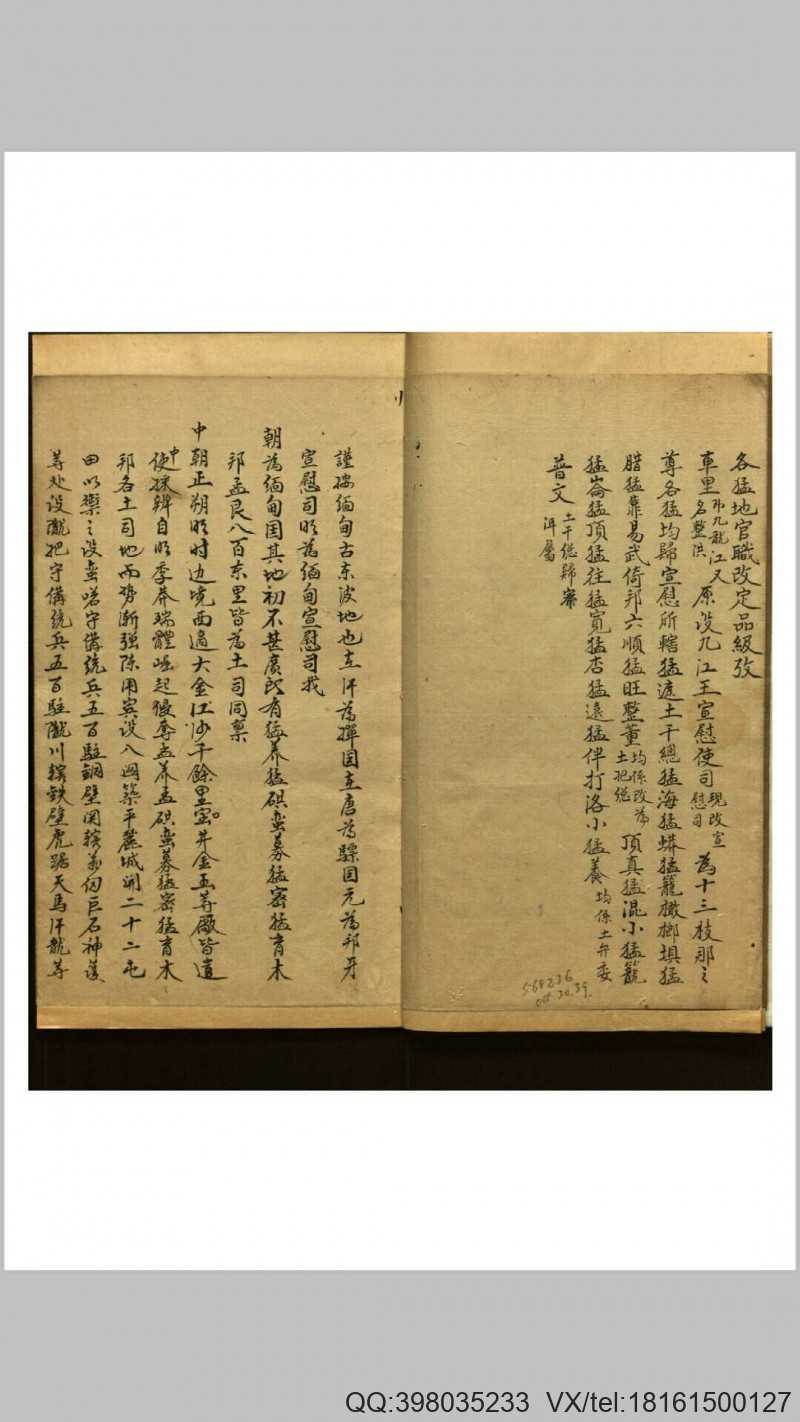 各猛地官職改定品級攷
車里 亦九龍江又名整洪 原设九江王宣慰使司 現改宣慰司 為十三枝那之
尊各猛均歸宣慰所轄猛遮土千總猛海猛蟒猛籠橄榔埧猛
腊猛靠易武倚邦六順猛旺整董 均係改為土把総 頂真猛混小猛籠
猛崙猛頂猛往猛寬猛杏猛遠猛伴打洛小猛養 均係土弁委
普文 土千総歸寧洱屬
謹按缅甸古东波地也在汗為撣国在唐為驃国元為邦牙
宣慰司明為缅甸宣慰司我
朝為缅甸国其地初不甚廣所有猛养猛硔蛮募猛密猛育木
邦孟艮八百东里皆為土司同稟
中朝正朔明时边境西過大金江沙千餘里宝井金玉等廠皆遣
中使採辦自明季莽瑞體崛起侵夺孟养孟硔蛮募猛密猛育木
邦各土司地而势渐强陈用宾设八関築平麓城開二十二屯
田以禦之设蛮哈守俻统兵五百駐銅壁関轄萬仞巨石神護
等处设隴把守俻统兵五百駐隴川轄铁壁虎踞天馬汗龍等
564236
Oct 30.39.
QQ:398035233 VX/tel:18161500127